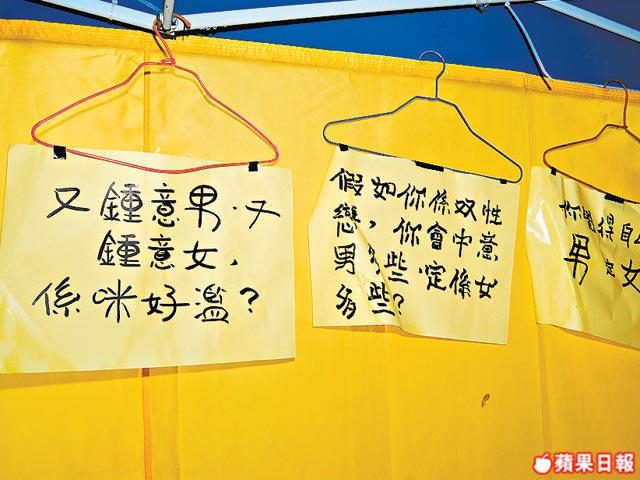 又鍾意男,又
鍾意女,
係咪好濫?
假如你係双性
戀,你會中意
男多些,定係女
多些?
你覺得自
男定女
蘋果日報